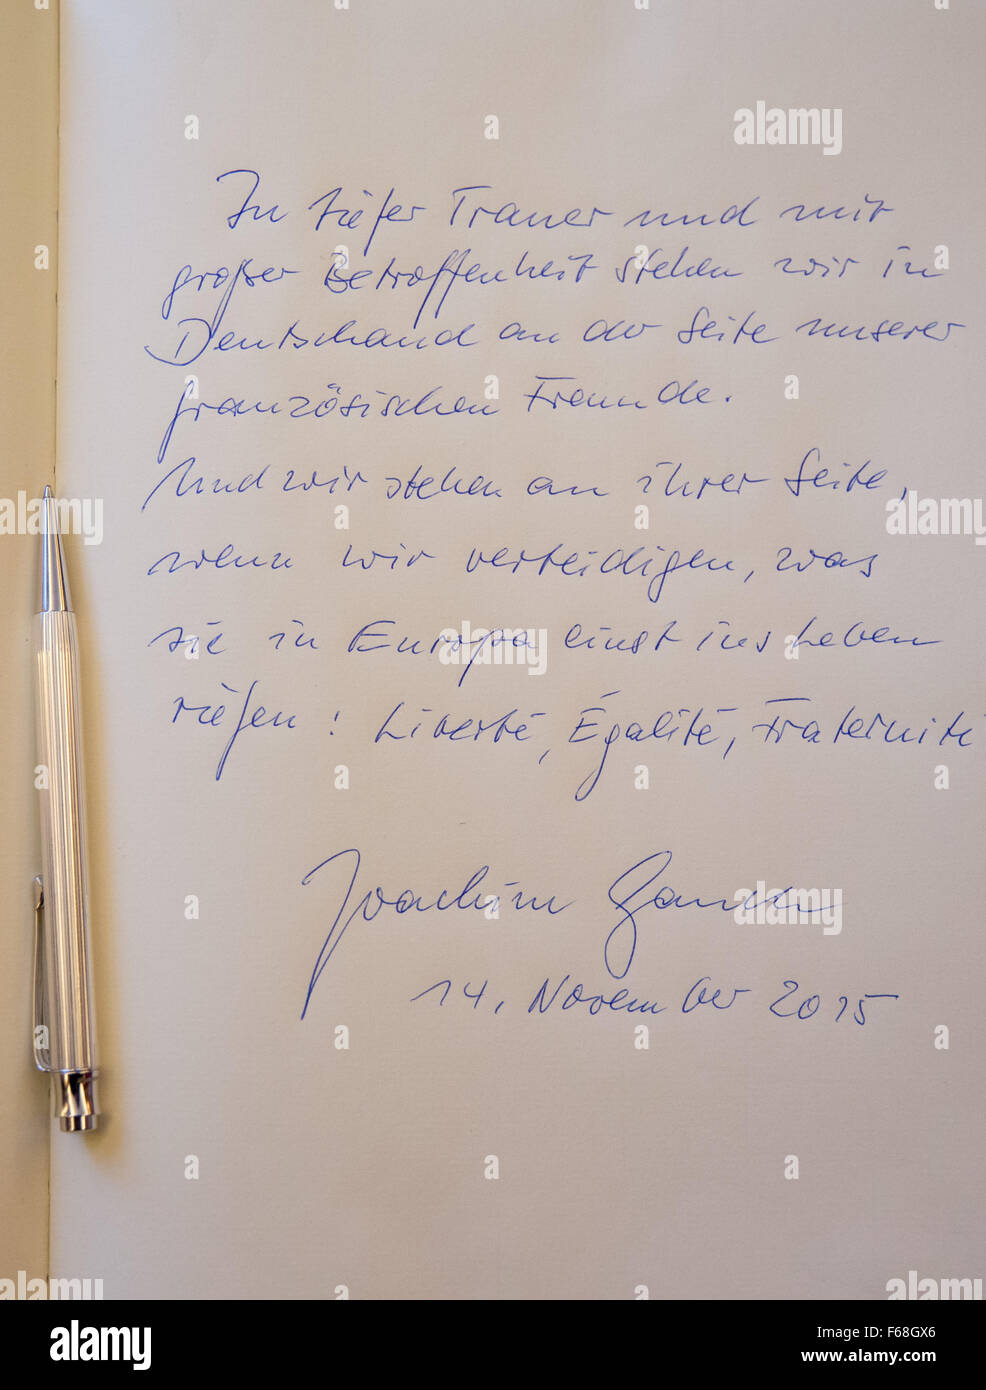 In tiefer Trauer und mit
großer Betroffenheit stehen wir in
Deutschand an der Seite unserer
französischen Freunde.
Und wir stehen an ihrer Seite,
wenn wir verteidigen, was
sie in Europa einst ins Leben
riefen: Liberté, Égalité, Fraternité
Joachim Gauck
14. November 2015
alamy
Image ID: F68GX6
www.alamy.com